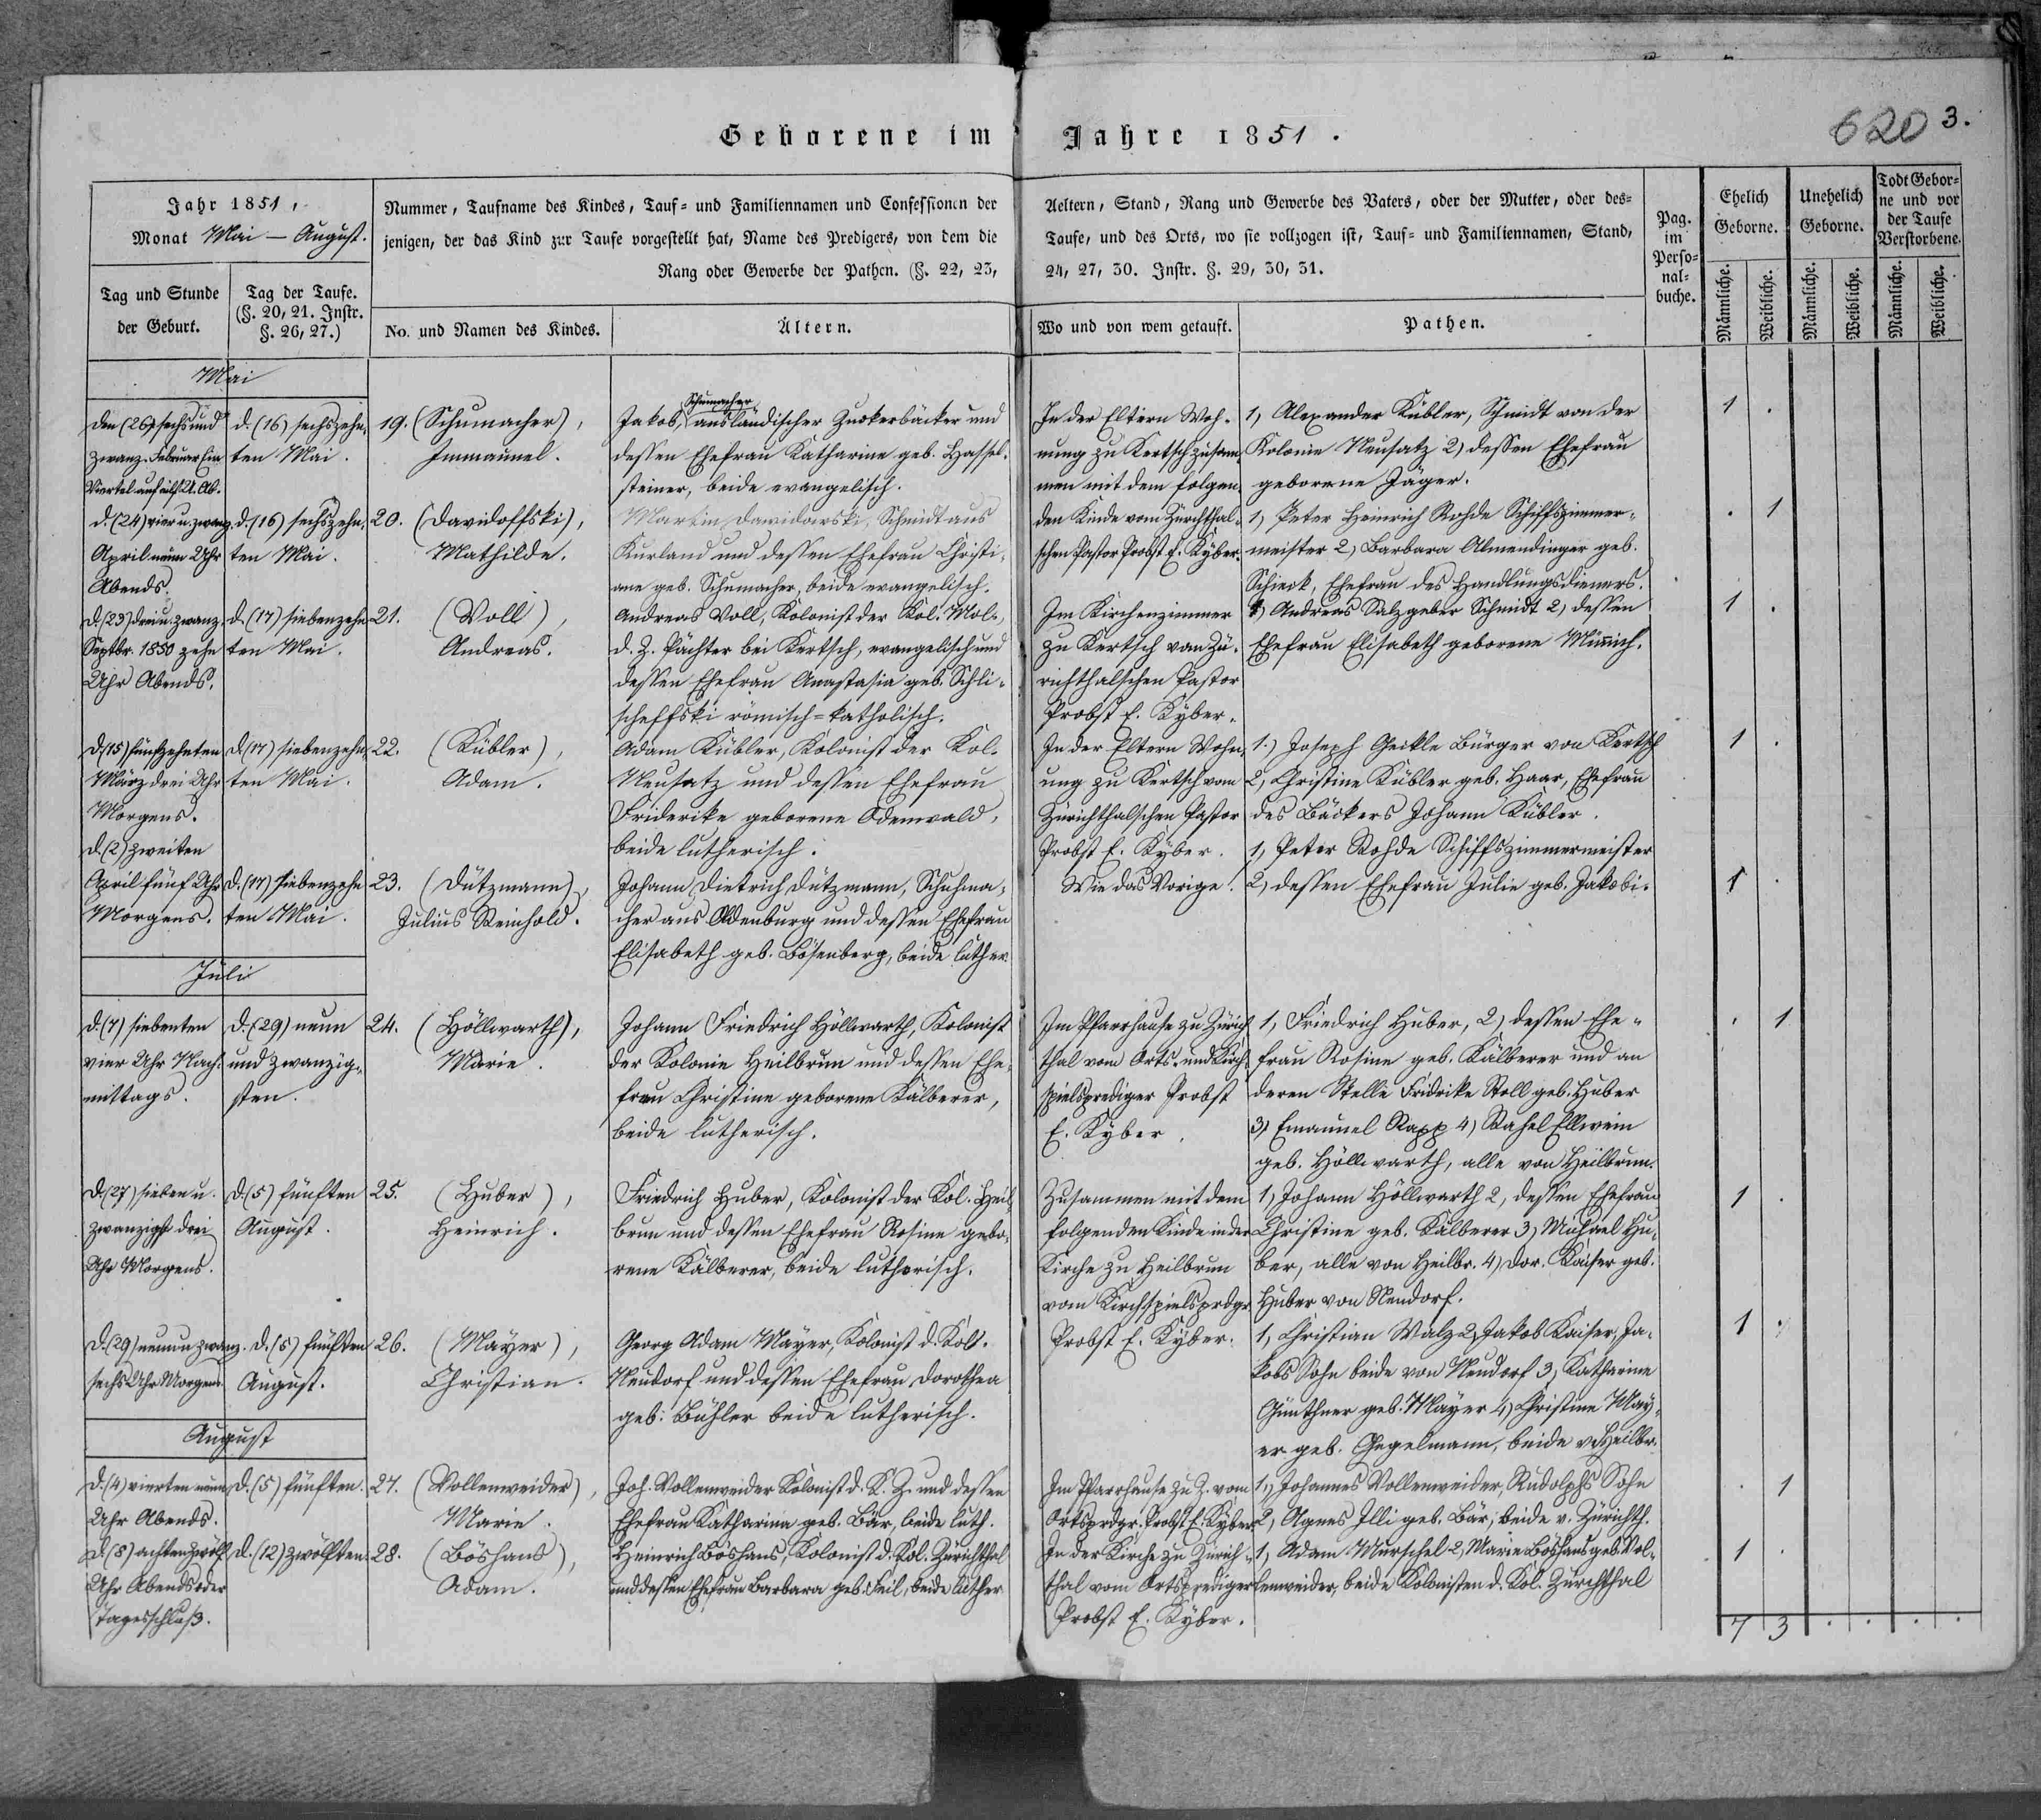 Geborene im Jahre 1851.
620 3.
Jahr 1851,
Monat Mai — August.
Tag und Stunde
der Geburt.
Tag der Taufe.
(§. 20, 21. Instr.
§. 26, 27.)
Nummer, Taufname des Kindes, Tauf- und Familiennamen und Confessionen der
jenigen, der das Kind zur Taufe vorgestellt hat, Name des Predigers, von dem die
Rang oder Gewerbe der Pathen. (§. 22, 23,
No. und Namen des Kindes.
Ältern.
Aeltern, Stand, Rang und Gewerbe des Vaters, oder der Mutter, oder des-
Taufe, und des Orts, wo sie vollzogen ist, Tauf- und Familiennamen, Stand,
24, 27, 30. Instr. §. 29, 30, 31.
Wo und von wem getauft.
Pathen.
Pag.
im
Perso-
nal-
buche.
Ehelich
Geborne.
Unehelich
Geborne.
Todt Gebor-
ne und vor
der Taufe
Verstorbene.
Männliche.
Weibliche.
Männliche.
Weibliche.
Männliche.
Weibliche.
Mai
den (26) sechs und
zwanz. Februar Ein
Viertel auf eilf U. Ab.
d. (16) sechszehn-
ten Mai.
19. (Schumacher),
Immanuel.
Schumacher
Jakob, ausländischer Zuckerbäcker und
dessen Ehefrau Katharine geb. Hassel-
steiner, beide evangelisch.
In der Eltern Woh-
nung zu Kertsch zusam-
men mit dem folgen-
1, Alexander Kübler, Schmidt von der
Kolonie Neusatz 2) dessen Ehefrau
geborene Jäger.
1 .
d. (24) vier u. zwanz.
April neun Uhr
Abends.
d. (16) sechszehn-
ten Mai.
20. (Davidoffski),
Mathilde.
Martin Dawidarski, Schmidt aus
Kurland und dessen Ehefrau Christi-
ane geb. Schumacher, beide evangelisch.
den Kinde vom Zürchthal-
schen Pastor Probst E. Kyber.
1, Peter Heinrich Rohde Schiffszimmer-
meister 2, Barbara Almendinger geb.
Schieck, Ehefrau des Handlungsdieners.
. 1
d. (23) drei u. zwanz.
Septbr. 1850 zehn
Uhr Abends.
d. (17) siebenzehn
ten Mai.
21. (Voll),
Andreas.
Andreas Voll, Kolonist der Kol. Mol.,
d. Z. Pächter bei Kertsch, evangelisch und
dessen Ehefrau Anastasia geb. Schli-
scheffski römisch=katholisch.
Im Kirchenzimmer
zu Kertsch von Zü-
richthalschen Pastor
Probst E. Kyber.
1) Andreas Salzgeber Schmidt 2) dessen
Ehefrau Elisabeth geborene Münnich.
1 .
d. (15) fünfzehnten
März drei Uhr
Morgens.
d. (17) siebenzehn-
ten Mai.
22. (Kübler),
Adam.
Adam Kübler, Kolonist der Kol.
Neusatz und dessen Ehefrau
Friderike geborene Odenwald,
beide lutherisch.
In der Eltern Wohn-
ung zu Kertsch vom
Zürichthalschen Pastor
Probst E. Kyber.
1.) Joseph Geikle Bürger von Kertsch
2, Christine Kübler geb. Haar, Ehefrau
des Bäckers Johann Kübler.
1 .
d. (2) zweiten
April fünf Uhr
Morgens.
d. (17) siebenzehn
ten Mai.
23. (Dützmann),
Julius Reinhold.
Johann Dietrich Dützmann, Schuhma-
cher aus Oldenburg und dessen Ehefrau
Elisabeth geb. Bösenberg, beide luther.
Wie das Vorige.
1, Peter Rohde Schiffszimmermeister
2, dessen Ehefrau Julie geb. Jakobi.
1 .
Juli
d. (7) siebenten
vier Uhr Nach-
mittags.
d. (29) neun
und zwanzig-
sten.
24. (Höllwarth),
Marie.
Johann Friedrich Höllwarth, Kolonist
der Kolonie Heilbrun und dessen Ehe-
frau Christine geborene Kälberer,
beide lutherisch.
Im Pfarrhause zu Zürich
thal vom Orts- und Kirch-
spielsprediger Probst
E. Kyber.
1, Friedrich Huber, 2, dessen Ehe-
frau Rosine geb. Kälberer und an
deren Stelle Fridrike Stoll geb. Huber
3) Emanuel Rapp 4) Rahel Ellwein
geb. Höllwarth, alle von Heilbrun.
. 1
d. (27) sieben u.
zwanzigst drei
Uhr Morgens.
d. (5) fünften
August.
25. (Huber),
Heinrich.
Friedrich Huber, Kolonist der Kol. Heil-
brun und dessen Ehefrau Rosine gebo-
rene Kälberer, beide lutherisch.
Zusammen mit dem
folgenden Kinde in der
Kirche zu Heilbrun
vom Kirchspielsprdgr
1, Johann Höllwarth 2, dessen Ehefrau
Christine geb. Kälberer 3) Michael Hu-
ber, alle von Heilbr. 4) Dor. Kaiser geb.
Huber von Neudorf.
1 .
d. (29) neun u. zwanz.
sechs Uhr Morgens.
d. (5) fünften
August.
26. (Mayer),
Christian.
Georg Adam Mayer, Kolonist d. Kol.
Neudorf und dessen Ehefrau Dorothea
geb. Bühler beide lutherisch.
Probst E. Kyber.
1, Christian Walz 2, Jakob Kaiser, Ja-
kobs Sohn beide von Neudorf 3, Katharine
Günthner geb. Mayer 4, Christine May-
er geb. Gegelmann, beide v. Heilbr.
1 .
August
d. (4) vierten neun
Uhr Abends.
d. (5) fünften.
27. (Vollenweider),
Marie.
Joh. Vollenweider Kolonist d. K. Z. und dessen
Ehefrau Katharina geb. Bär, beide luth.
Im Pfarrhause zu Z. vom
Ortsprdgr. Probst E. Kyber
1, Johannes Vollenweider, Rudolphs Sohn
2, Agnes Illi geb. Bär, beide v. Zürichth.
. 1
d. (8) achten zwölf
Uhr Abends oder
Tagesschluß.
d. (12) zwölften
28. (Böshans),
Adam.
Heinrich Böshans, Kolonist d. Kol. Zürichthal
und dessen Ehefrau Barbara geb. Feil, beide luther
In der Kirche zu Zürich-
thal vom Ortsprediger
Probst E. Kyber.
1, Adam Murschel 2, Marie Böshans geb. Vol-
lenweider, beide Kolonisten d. Kol. Zürchthal
1 .
7 3 . . . .